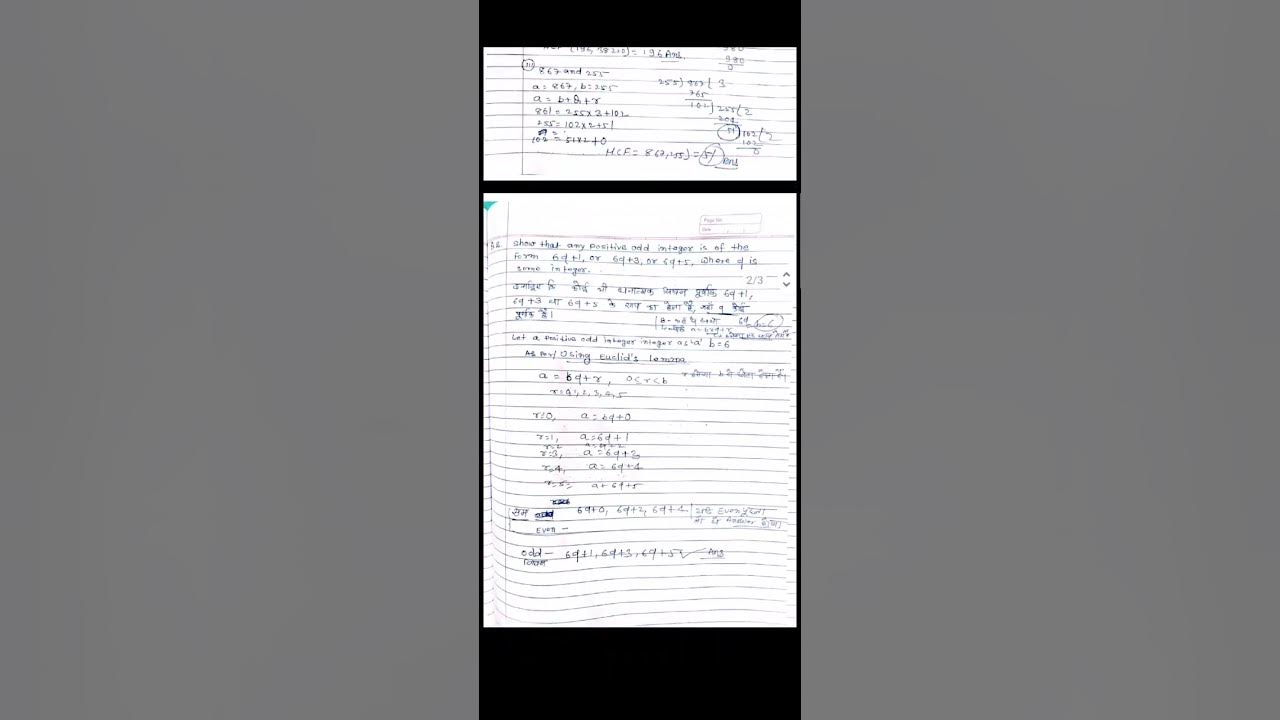 HCF (196, 38220) = 196 Ans.
980
980
0
(iii) 867 and 255
a = 867, b = 255
a = b+q+r
867 = 255×3+102
255 = 102×2+51
102 = 51×2+0
HCF = 867,255) = 51 Ans
255) 867 ( 3
765
102) 255 ( 2
204
51) 102 ( 2
102
0
Page No
Date
Show that any positive odd integer is of the
form 6q+1, or 6q+3, or 6q+5, where q is
some integer.
2/3
कि कोई भी धनात्मक विषम पूर्णांक 6q+1,
6q+3 या 6q+5 के रूप का होता है, जहाँ q कोई
पूर्णांक है।
Let a positive odd integer integer as 'a' b=6
As per/Using Euclid's lemma
a = 6q+r, 0≤r<b
r=0,1,2,3,4,5
r=0, a=6q+0
r=1, a=6q+1
r=2 a=6q+2
r=3, a=6q+3
r=4, a=6q+4
r=5= a+6q+5
सम 6q+0, 6q+2, 6q+4
Even –
odd – 6q+1, 6q+3, 6q+5 Ans
विषम